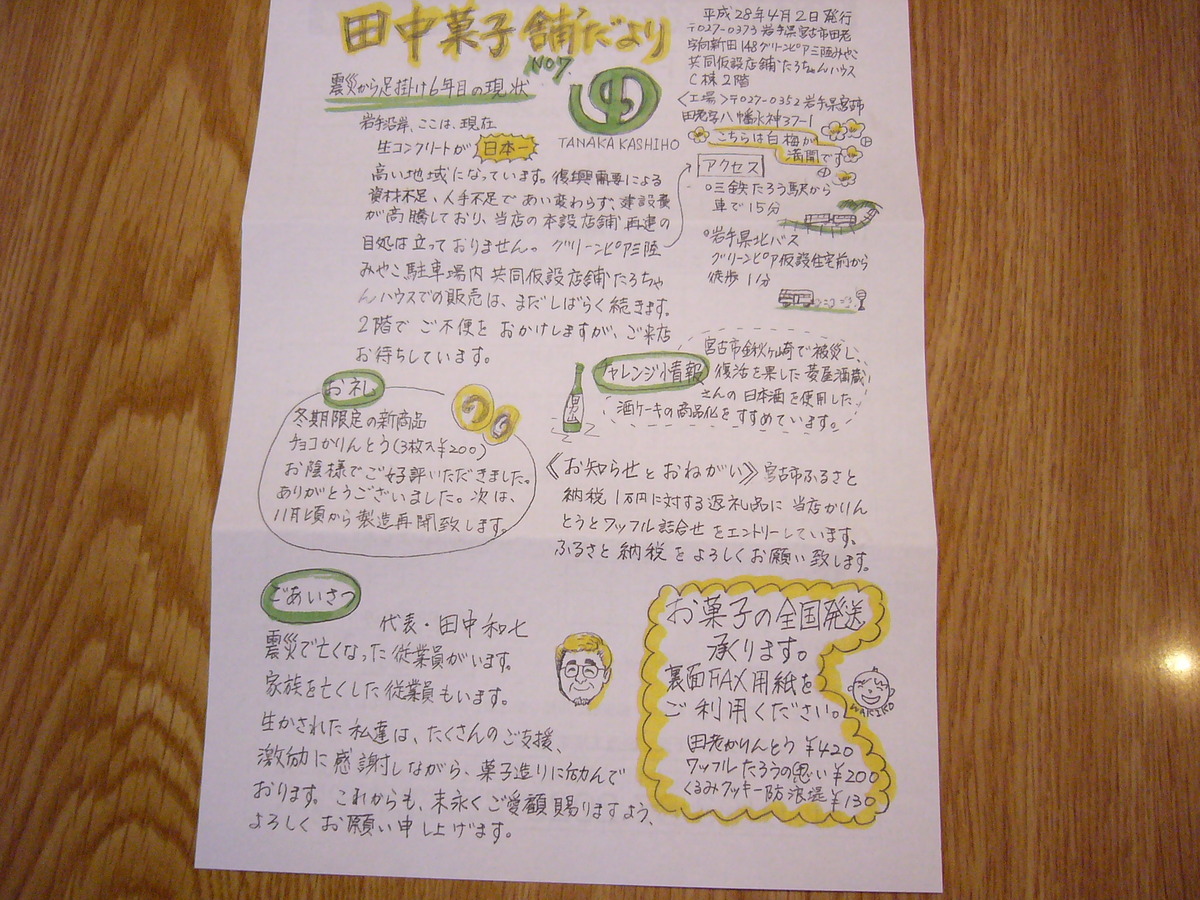 田中菓子舗だより
NO7.
平成28年4月2日発行
〒027-0373 岩手県宮古市田老
字向新田148グリーンピア三陸みやこ
共同仮設店舗たろちゃんハウス
C棟2階
<工場>〒027-0352 岩手県宮古市
田老字八幡水神37-1
こちらは白梅が
満開です
震災から足掛け6年目の現状
TANAKA KASHIHO
岩手沿岸、ここは、現在
生コンクリートが日本一
高い地域になっています。復興需要による
資材不足、人手不足であい変わらず、建設費
が高騰しており、当店の本設店舗再建の
目処は立っておりません。グリーンピア三陸
みやこ駐車場内共同仮設店舗たろちゃ
んハウスでの販売は、まだしばらく続きます。
2階でご不便をおかけしますが、ご来店
お待ちしています。
アクセス
○三鉄たろう駅から
車で15分
○岩手県北バス
グリーンピア仮設住宅前から
徒歩1分
チャレンジ情報
宮古市鍬ヶ崎で被災し、
復活を果した菱屋酒蔵
さんの日本酒を使用した
酒ケーキの商品化をすすめています。
お礼
冬期限定の新商品
チョコかりんとう(3枚入¥200)
お陰様でご好評いただきました。
ありがとうございました。次は、
11月頃から製造再開致します。
《お知らせとおねがい》宮古市ふるさと
納税1万円に対する返礼品に当店かりん
とうとワッフル詰合せをエントリーしています。
ふるさと納税をよろしくお願い致します。
ごあいさつ
代表・田中和七
震災で亡くなった従業員がいます。
家族を亡くした従業員もいます。
生かされた私達は、たくさんのご支援、
激励に感謝しながら、菓子造りに励んで
おります。これからも、末永くご愛顧賜りますよう、
よろしくお願い申し上げます。
お菓子の全国発送
承ります。
裏面FAX用紙を
ご利用ください。
WARIKO
田老かりんとう ¥420
ワッフルたろうの思い ¥200
くるみクッキー防浪堤 ¥130